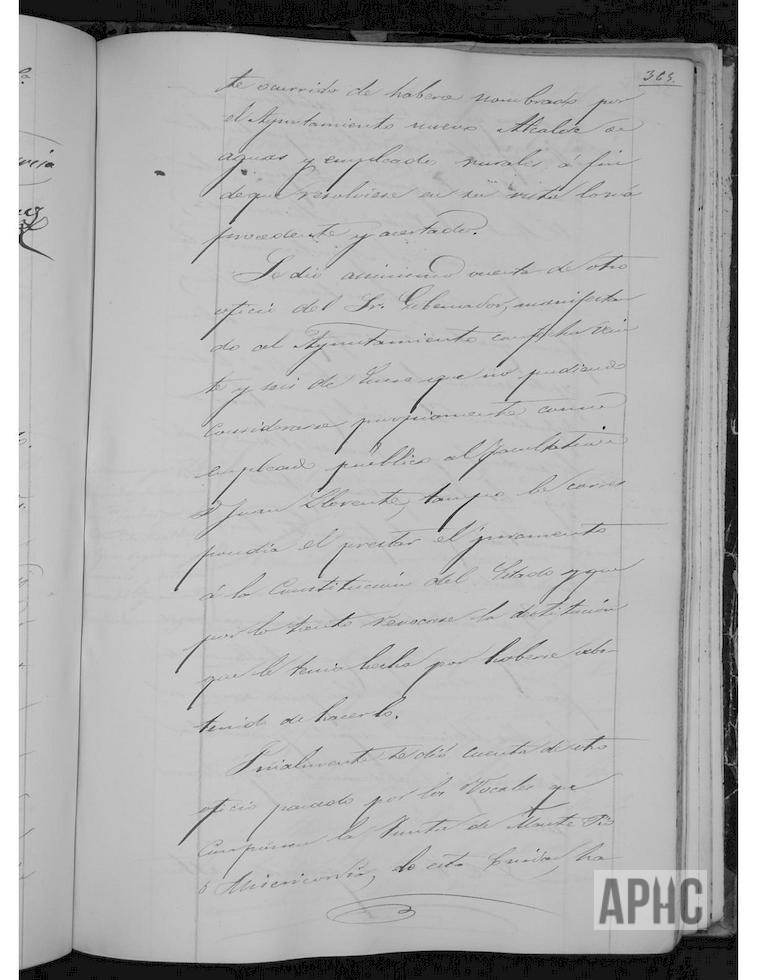 365.
te ocurrido de haberse nombrado por
el Ayuntamiento nuevo Alcalde de
aguas y empleados rurales á fin
de que resolviese en su vista lo más
procedente y acertado.
Se dió asimismo cuenta de otro
oficio del Sr. Gobernador, manifestan
do al Ayuntamiento con fha vein
te y seis de que no pudiendo
considerarse propiamente como
empleado público al facultativo
D Juan Llorente, tampo le corres
pondia el prestar el juramento
á la Constitución del Estado y que
por lo tanto revocase la destitución
que le tenia hecha por haberse abs-
tenido de hacerlo.
Finalmente se dió cuenta de otro
oficio pasado por los Vocales que
componen la Junta de Monte Pio
ó Misericordia, de esta Ciudad, ha-
APHC